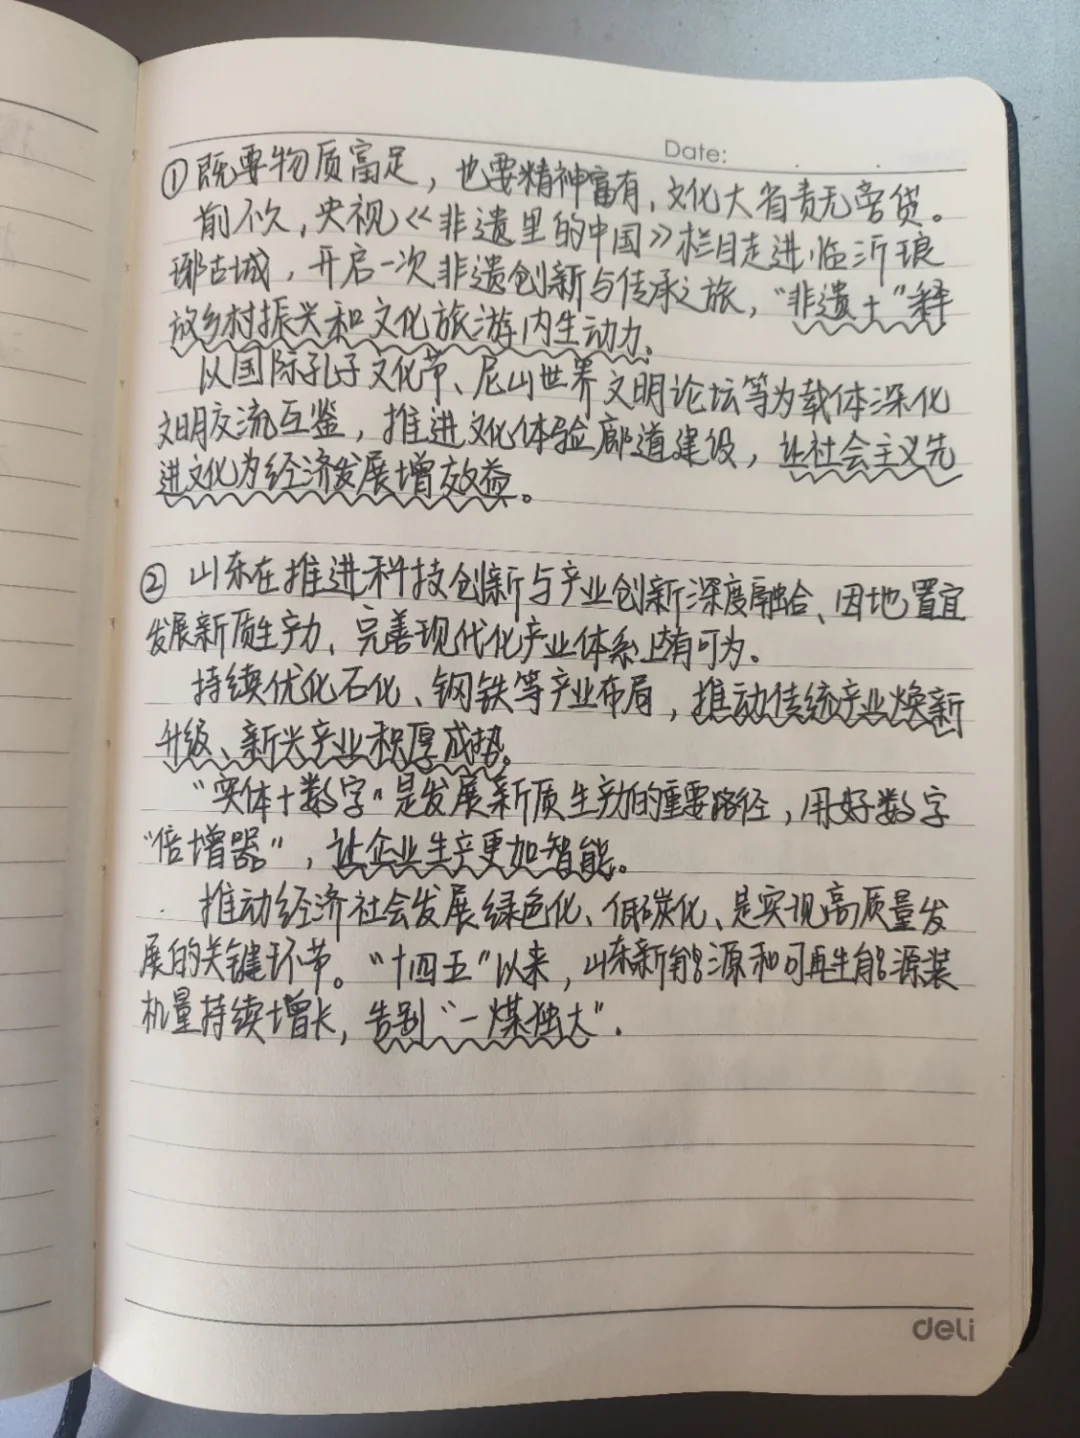 Date:
①既要物质富足，也要精神富有，文化大省责无旁贷。
前不久，央视《非遗里的中国》栏目走进临沂琅
琊古城，开启一次非遗创新与传承之旅，“非遗+”释
放乡村振兴和文化旅游内生动力。
以国际孔子文化节、尼山世界文明论坛等为载体深化
文明交流互鉴，推进文化体验廊道建设，让社会主义先
进文化为经济发展增效益。
②山东在推进科技创新与产业创新深度融合、因地置宜
发展新质生产力、完善现代化产业体系上有可为。
持续优化石化、钢铁等产业布局，推动传统产业焕新
升级、新兴产业积厚成势。
“实体+数字”是发展新质生产力的重要路径，用好数字
“倍增器”，让企业生产更加智能。
推动经济社会发展绿色化、低碳化、是实现高质量发
展的关键环节。“十四五”以来，山东新能源和可再生能源装
机量持续增长，告别“一煤独大”.
deli